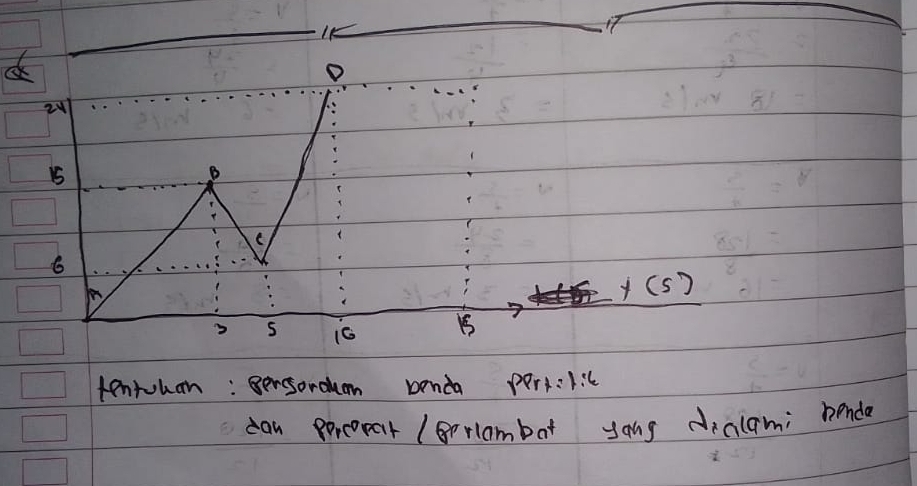 D
24
15
B
6
C
A
3
5
10
15
t (s)
tentukan : pergerakan benda pertitik
dan percepat / perlambat yang dialami benda